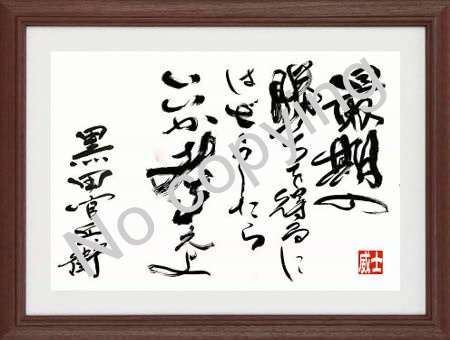 最期の
勝ちを得るに
はどうしたら
いいか考えよ
黒田官兵衛
士威
No copying